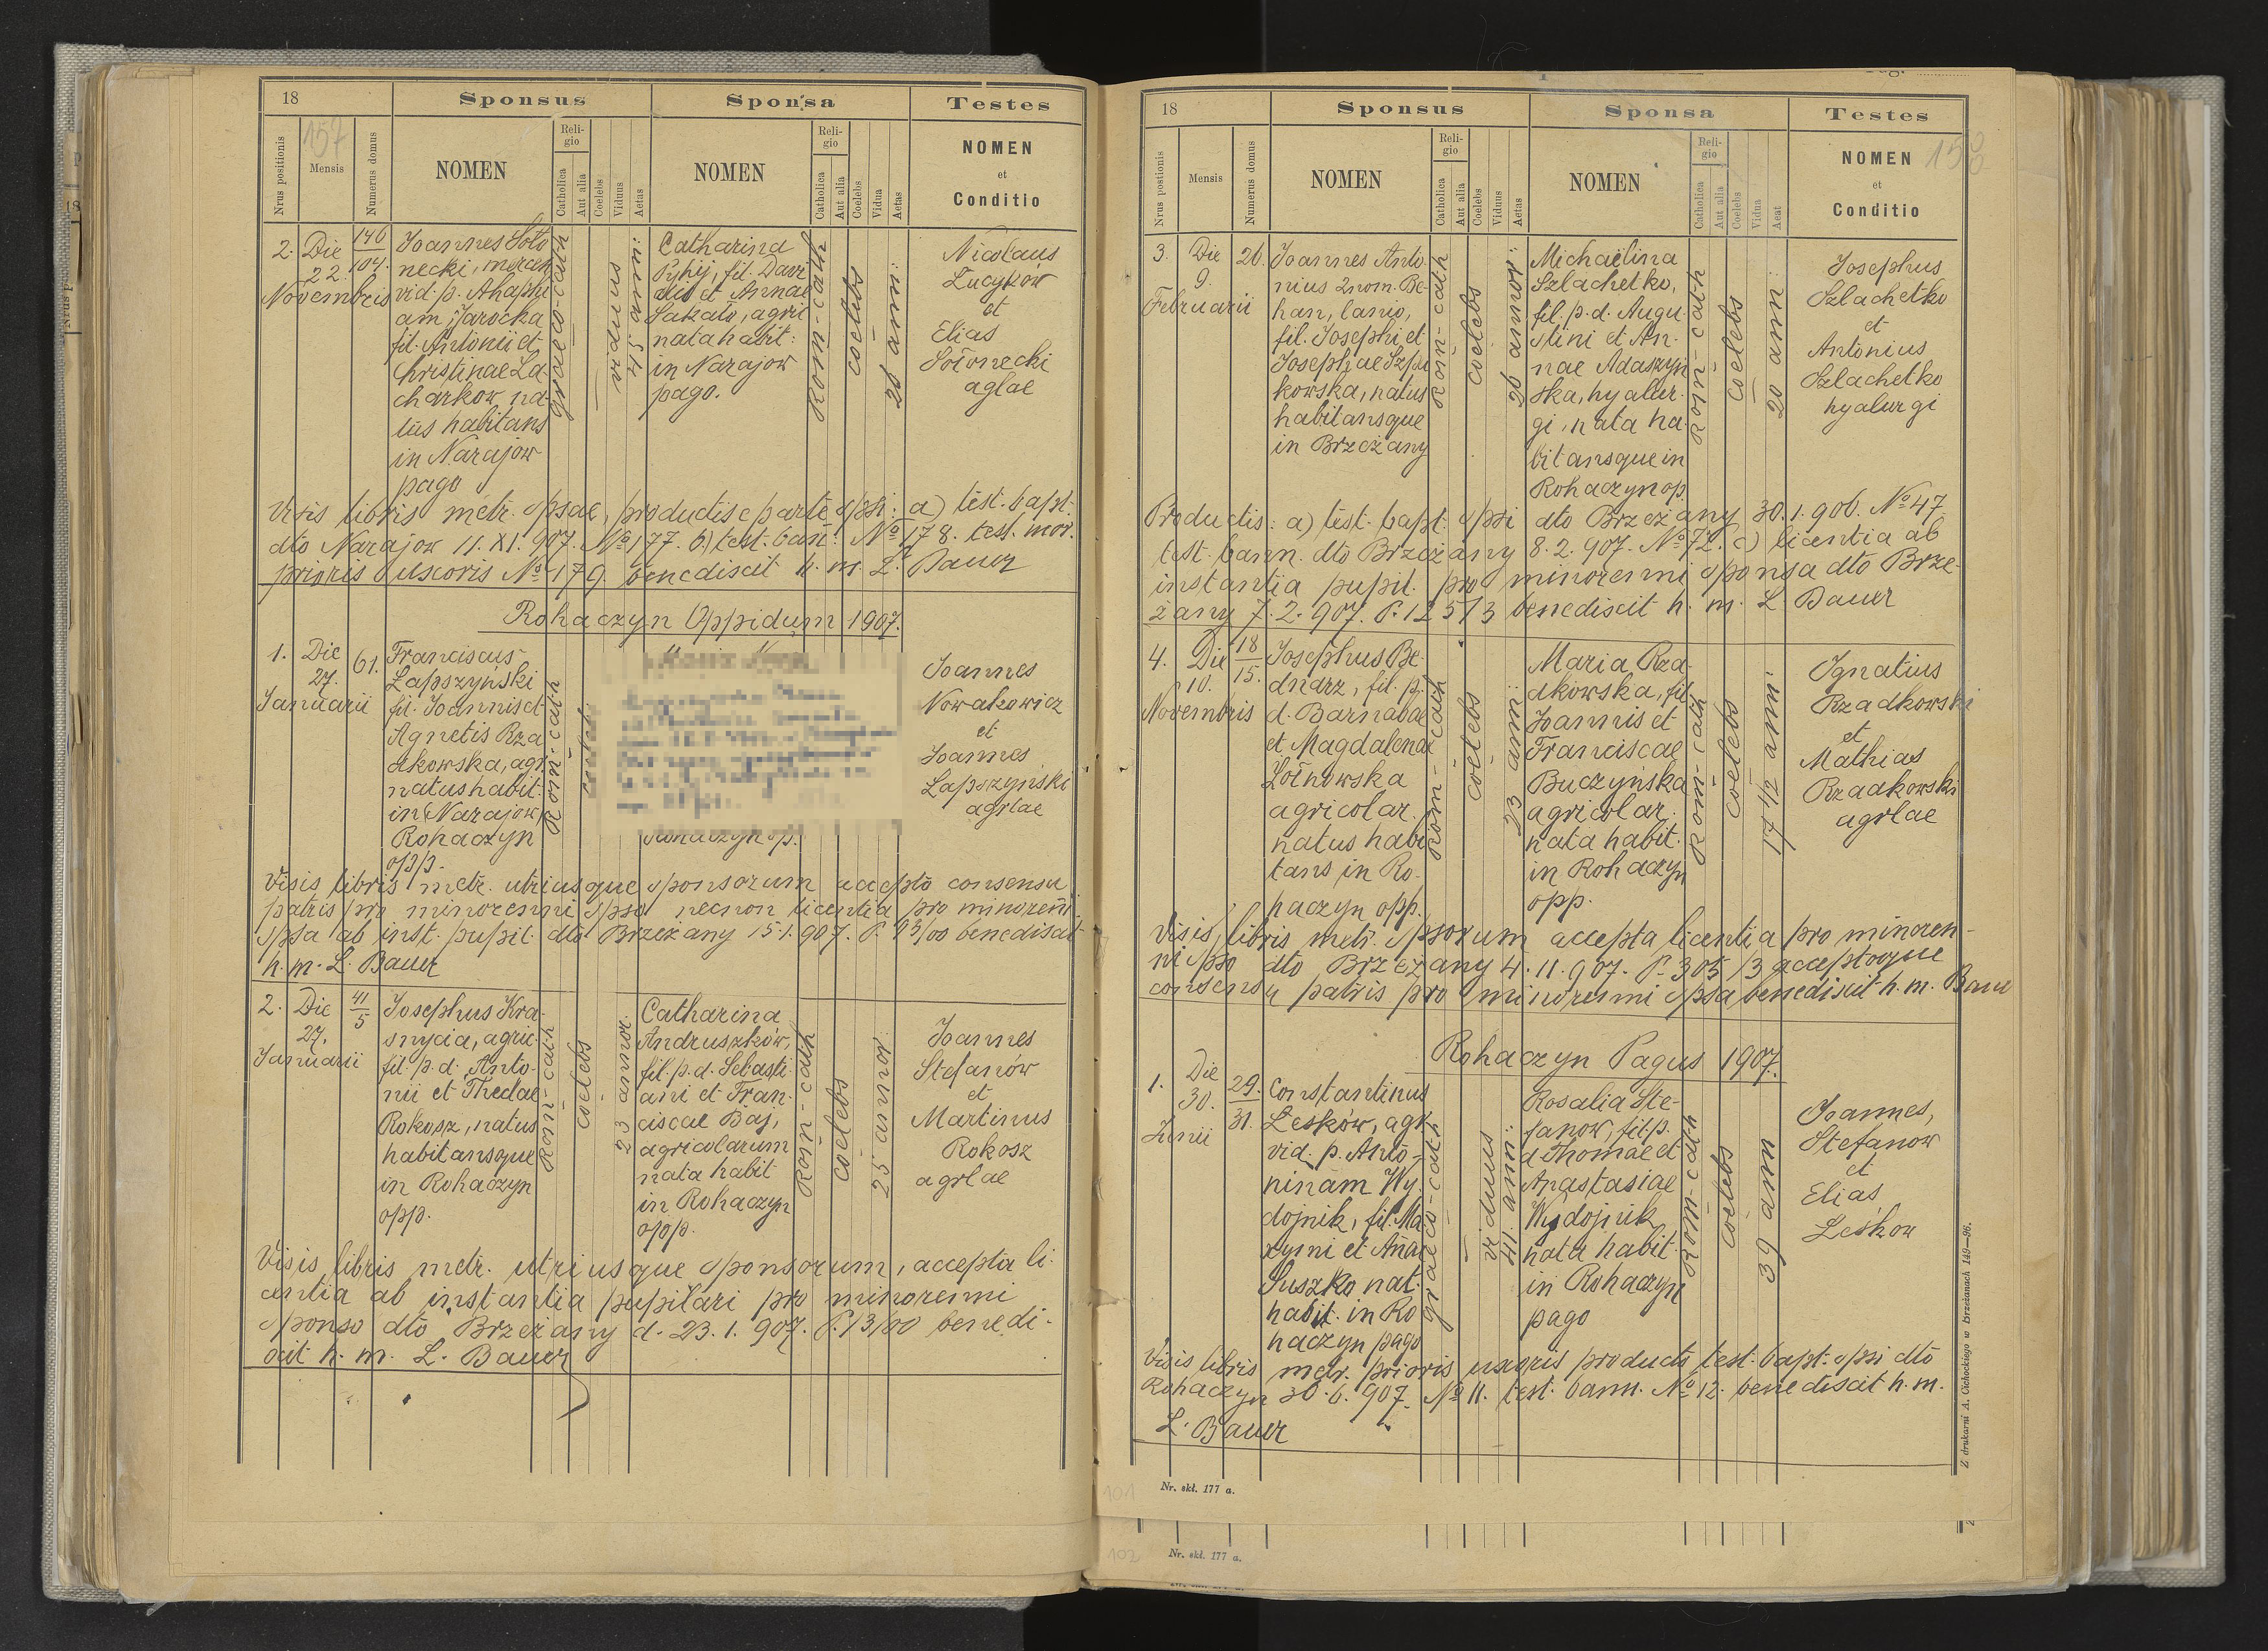 18
Sponsus
Sponsa
Testes
Nrus positionis
157
Mensis
Numerus domus
NOMEN
Religio
Catholica
Aut alia
Coelebs
Viduus
Aetas
NOMEN
Religio
Catholica
Aut alia
Coelebs
Vidua
Aetas
NOMEN
et
Conditio
2.
Die
22.
Novembris
146
104.
Joannes Soło
necki, mercen
vid. p. Ahaphi
am Jarocka
fil. Antonii et
Christinae La
charkow na-
tus habitans
in Narajow
pago
graeco-cath
viduus
45 ann:
Catharina
Pyhij, fil. Davi
dis et Annae
agric
nata habit:
in Narajow
pago.
Rom-cath
coelebs
28 anni:
Nicolaus
Łucyków
et
Elias
Sołonecki
aglae
Visis libris metr. spsae, productis e parte spsi: a) test. bapt:
dto Narajow 11. XI. 907. No 177. b) test. ban: No 178. test. mor.
prioris uxoris No 179. benedixit h. m. L. Bauer
Rohaczyn Oppidum 1907.
1.
Die
27.
Januarii
61.
Franciscus
Łapszyński
fil. Joannis et
Agnetis Rza
dkowska, agr.
natus habit:
in Narajow
Rohaczyn
opp.
Rom-cath
Rohaczyn op.
Joannes
Nowakowicz
et
Joannes
Łapszyński
agrlae
Visis libris metr. utriusque sponsorum accepto consensu
patris pro minorenni spso necnon licentia pro minorenni
spsa ab inst. pupil. dto Brzeżany 15.1.907. P. 93/00 benedixit
h. m. L. Bauer
2.
Die
27.
Januarii
41
5
Josephus Kra-
snycia, agric.
fil. p. d. Anto-
nii et Theclae
Rokosz, natus
habitansque
in Rohaczyn
opp.
Rom-cath
coelebs
23 annor.
Catharina
Andruszków,
fil. p. d. Sebasti
ani et Fran-
ciscae Baj,
agricolarum
nata habit
in Rohaczyn
opp.
Rom-cath
coelebs
25 annor
Joannes
Stefanów
et
Martinus
Rokosz
agrlae
Visis libris metr. utriusque sponsorum, accepta li-
centia ab instantia pupilari pro minorenni
sponso dto Brzeżany d. 23.1.907. P. 13/00 benedi-
xit h. m. L. Bauer
18
Sponsus
Sponsa
Testes
Nrus postionis
Mensis
Numerus domus
NOMEN
Religio
Catholica
Aut alia
Coelebs
Viduus
Aetas
NOMEN
Religio
Catholica
Aut alia
Coelebs
Vidua
Aeat
NOMEN
et
Conditio
3.
Die
9.
Februarii
26.
Joannes Anto-
nius 2 nom. Be-
han, lanio,
fil. Josephi et
Josephae Szpu
kowska, natus
habitansque
in Brzeżany
Rom-cath
coelebs
26 annor:
Michaëlina
Szlachetko,
fil. p. d. Augu-
stini et An-
nae Adaszyń
ska, hyalur-
gi, nata ha-
bitansque in
Rohaczyn op.
Rom-cath
coelebs
20 ann:
Josephus
Szlachetko
et
Antonius
Szlachetko
hyalurgi
Productis: a) test. bapt. spsi dto Brzeżany 30.1.906. No 47.
test. bann. dto Brzeżany 8.2.907. No 72. c) licentia ab
instantia pupil. pro minorenni sponsa dto Brze-
żany 7.2.907. P. 125/3 benedixit h. m. L Bauer
4.
Die
10.
Novembris
18
15.
Josephus Be-
dnarz, fil. p.
d. Barnabae
et Magdalenae
Żołnowska
agricolar.
natus habi
tans in Ro-
haczyn opp.
Rom-cath
coelebs
23 ann:
Maria Rza-
dkowska, fil.
Joannis et
Franciscae
Buczyńska
agricolar.
nata habit.
in Rohaczyn
opp.
Rom-cath
coelebs
Ignatius
Rzadkowski
et
Mathias
Rzadkowski
agrlae
Visis libris metr. spsorum accepta licentia pro minoren-
ni spso dto Brzeżany 4.11.907. P. 305/3 acceptoque
consensu patris pro minorenni spsa benedixit h. m. Bauer
Rohaczyn Pagus 1907.
1.
Die
30.
Junii
29.
31.
Constantinus
Leśków, agr
vid. p. Anto-
ninam Wy
dojnik, fil. Ma
xymi et Annae
Suszko nat.
habit. in Ro
haczyn pago
graeco-cath
viduus
41. ann:
Rosalia Ste-
fanow, fil. p.
d Thomae et
Anastasiae
Wydojnik
nata habit.
in Rohaczyn
pago
Rom-cath
coelebs
39 ann
Joannes,
Stefanow
et
Elias
Leśkow
Visis libris metr. prioris uxoris producto test. bapt. spsi dto
Rohaczyn 30.6.907. No 11. test. bann. No 12. benedixit h. m.
L. Bauer
Z drukarni A. Cichockiego w Brzeżanach 149—96.
101
Nr. skł. 177 a.
102
Nr. skł. 177 a.